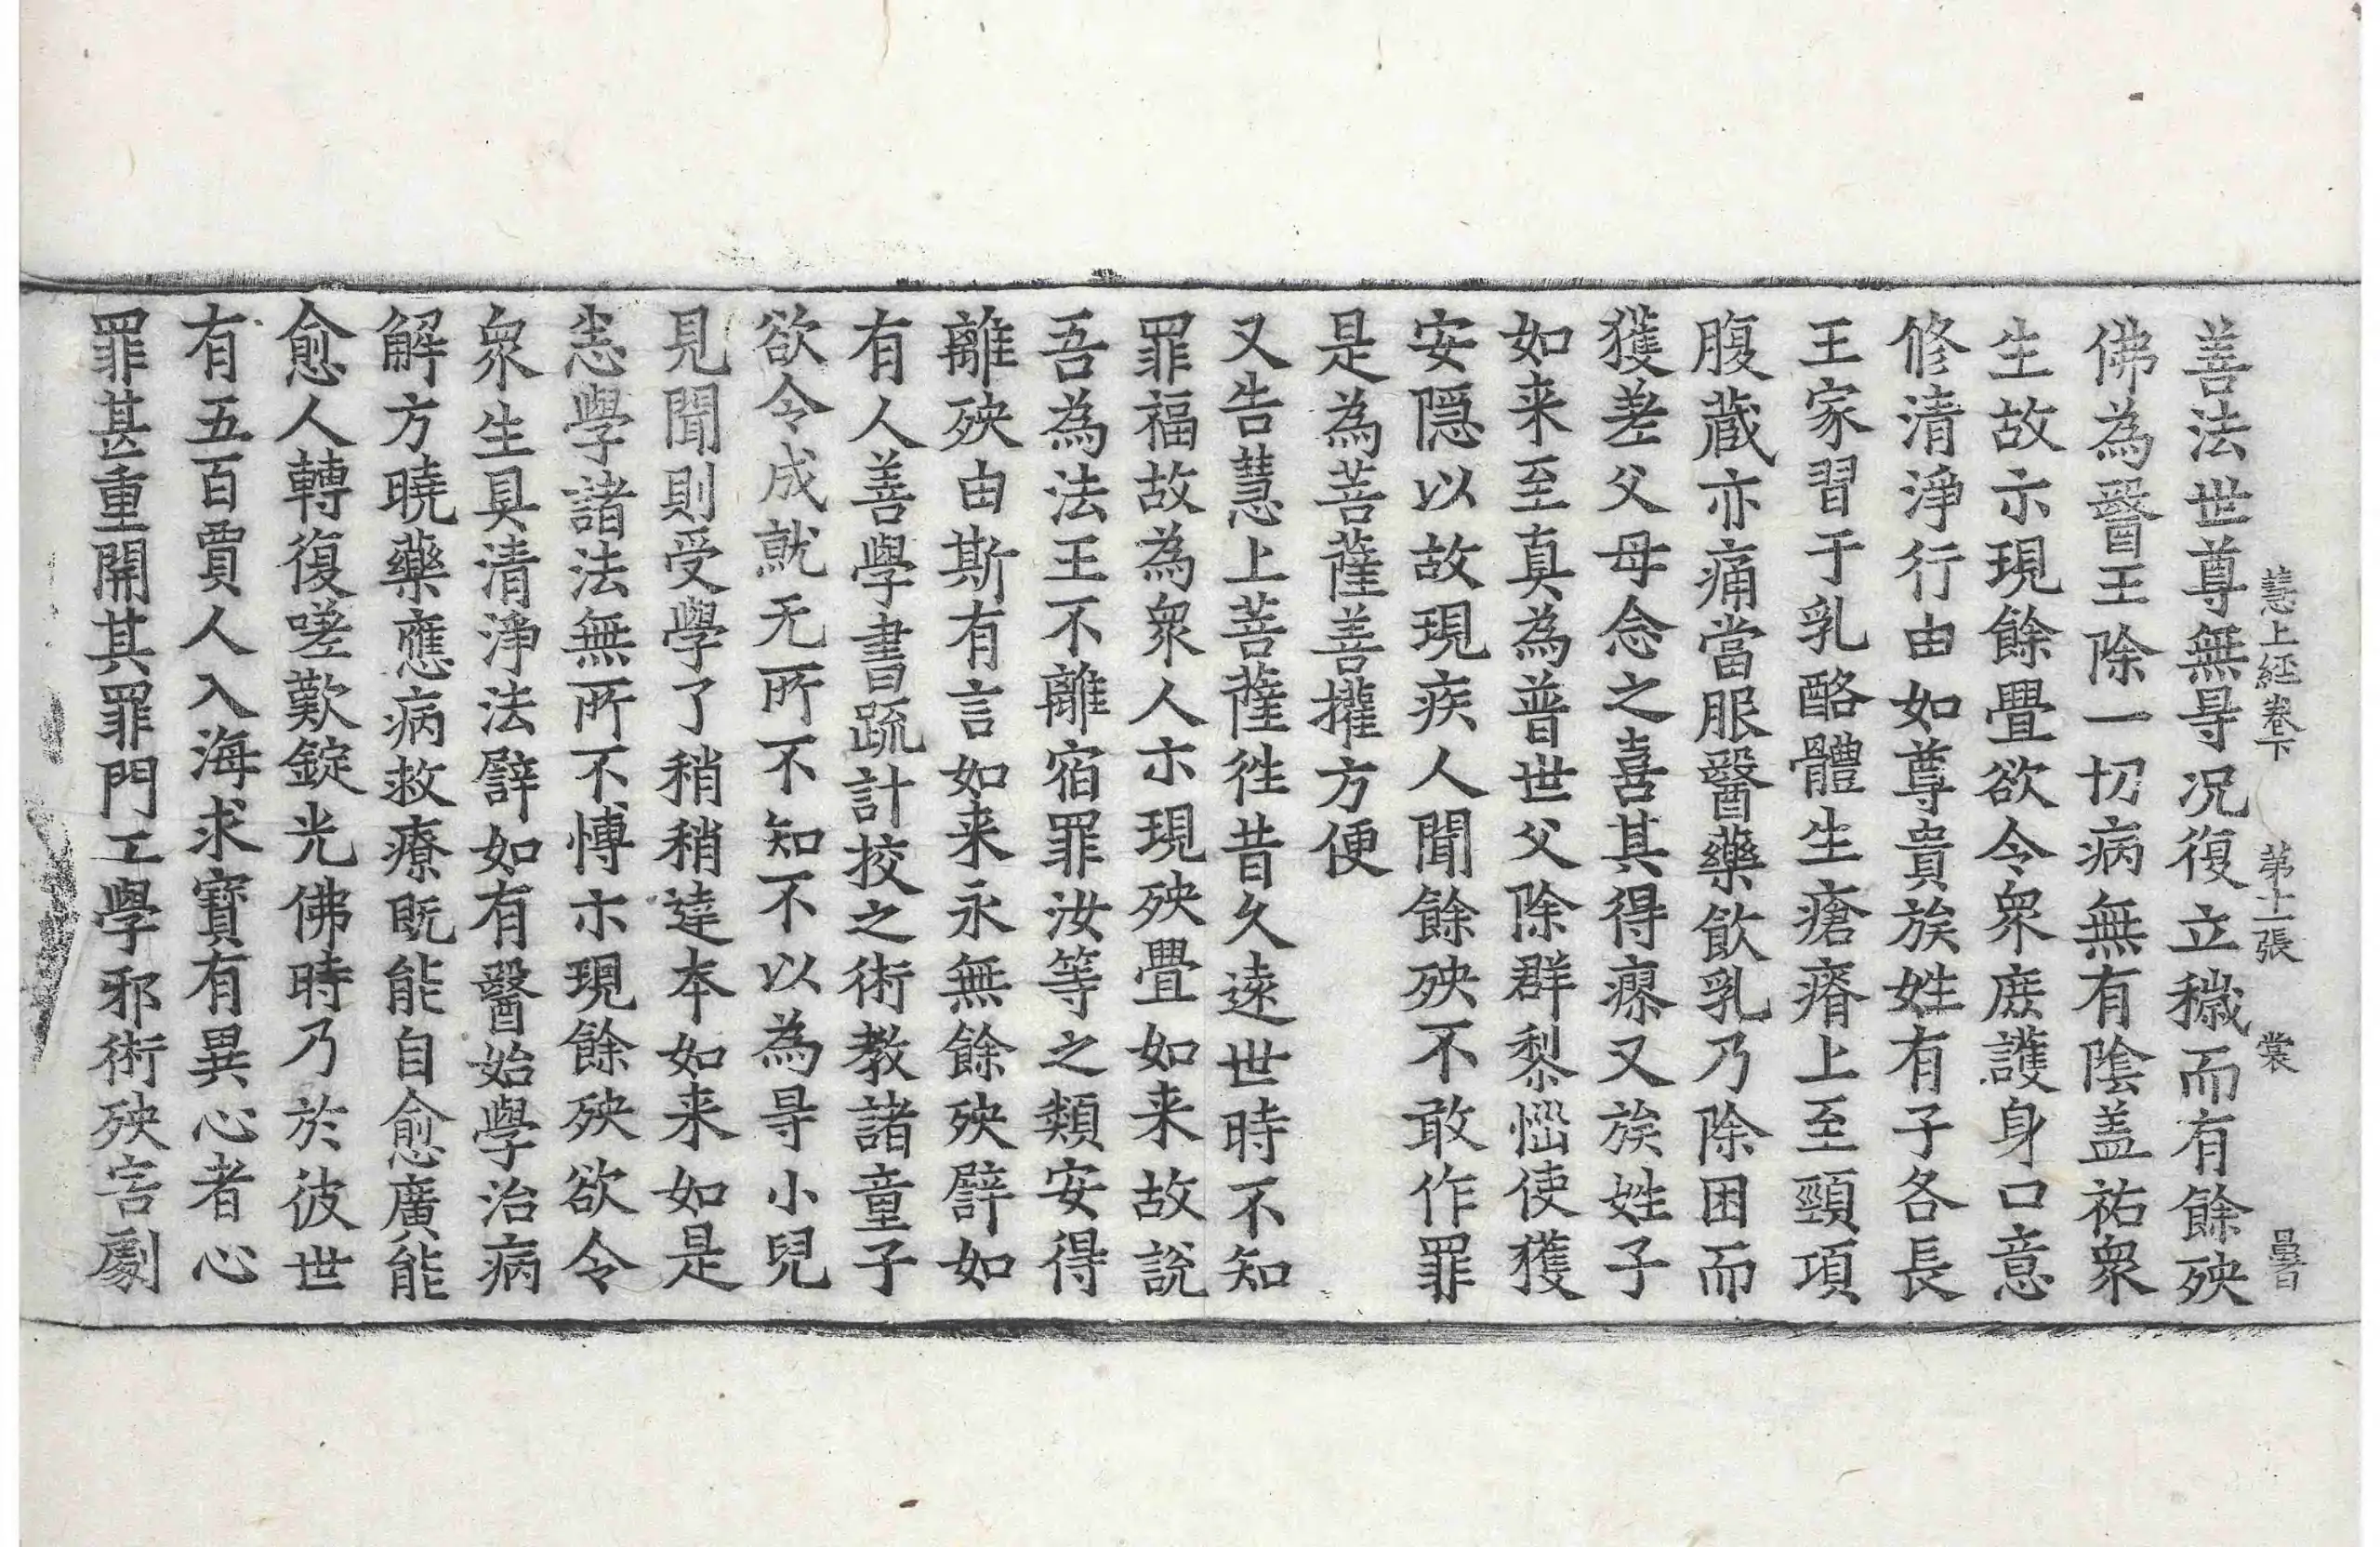 慧上經卷下 第十一張 裳 曇
善法世尊無㝵况復立穢而有餘殃
佛為醫王除一切病無有陰盖祐衆
生故示現餘疊欲令衆庶護身口意
修清淨行由如尊貴族姓有子各長
王家習于乳酪體生瘡瘠上至頸項
腹蔵亦痛當服醫藥飲乳乃除困而
獲差父母念之喜其得瘳又族姓子
如来至真為普世父除群黎惱使獲
安隱以故現疾人聞餘殃不敢作罪
是為菩薩善權方便
又告慧上菩薩徃昔久遠世時不知
罪福故為衆人示現殃疊如来故說
吾為法王不離宿罪汝等之類安得
離殃由斯有言如来永無餘殃譬如
有人善學書䟽計挍之術教諸童子
欲令成就无所不知不以為㝵小兒
見聞則受學了稍稍達本如来如是
悉學諸法無所不愽示現餘殃欲令
衆生具清淨法譬如有醫始學治病
解方曉藥應病救療既能自愈廣能
愈人轉復嗟歎錠光佛時乃於彼世
有五百賈人入海求寶有異心者心
罪甚重開其罪門工學邪術殃害劇